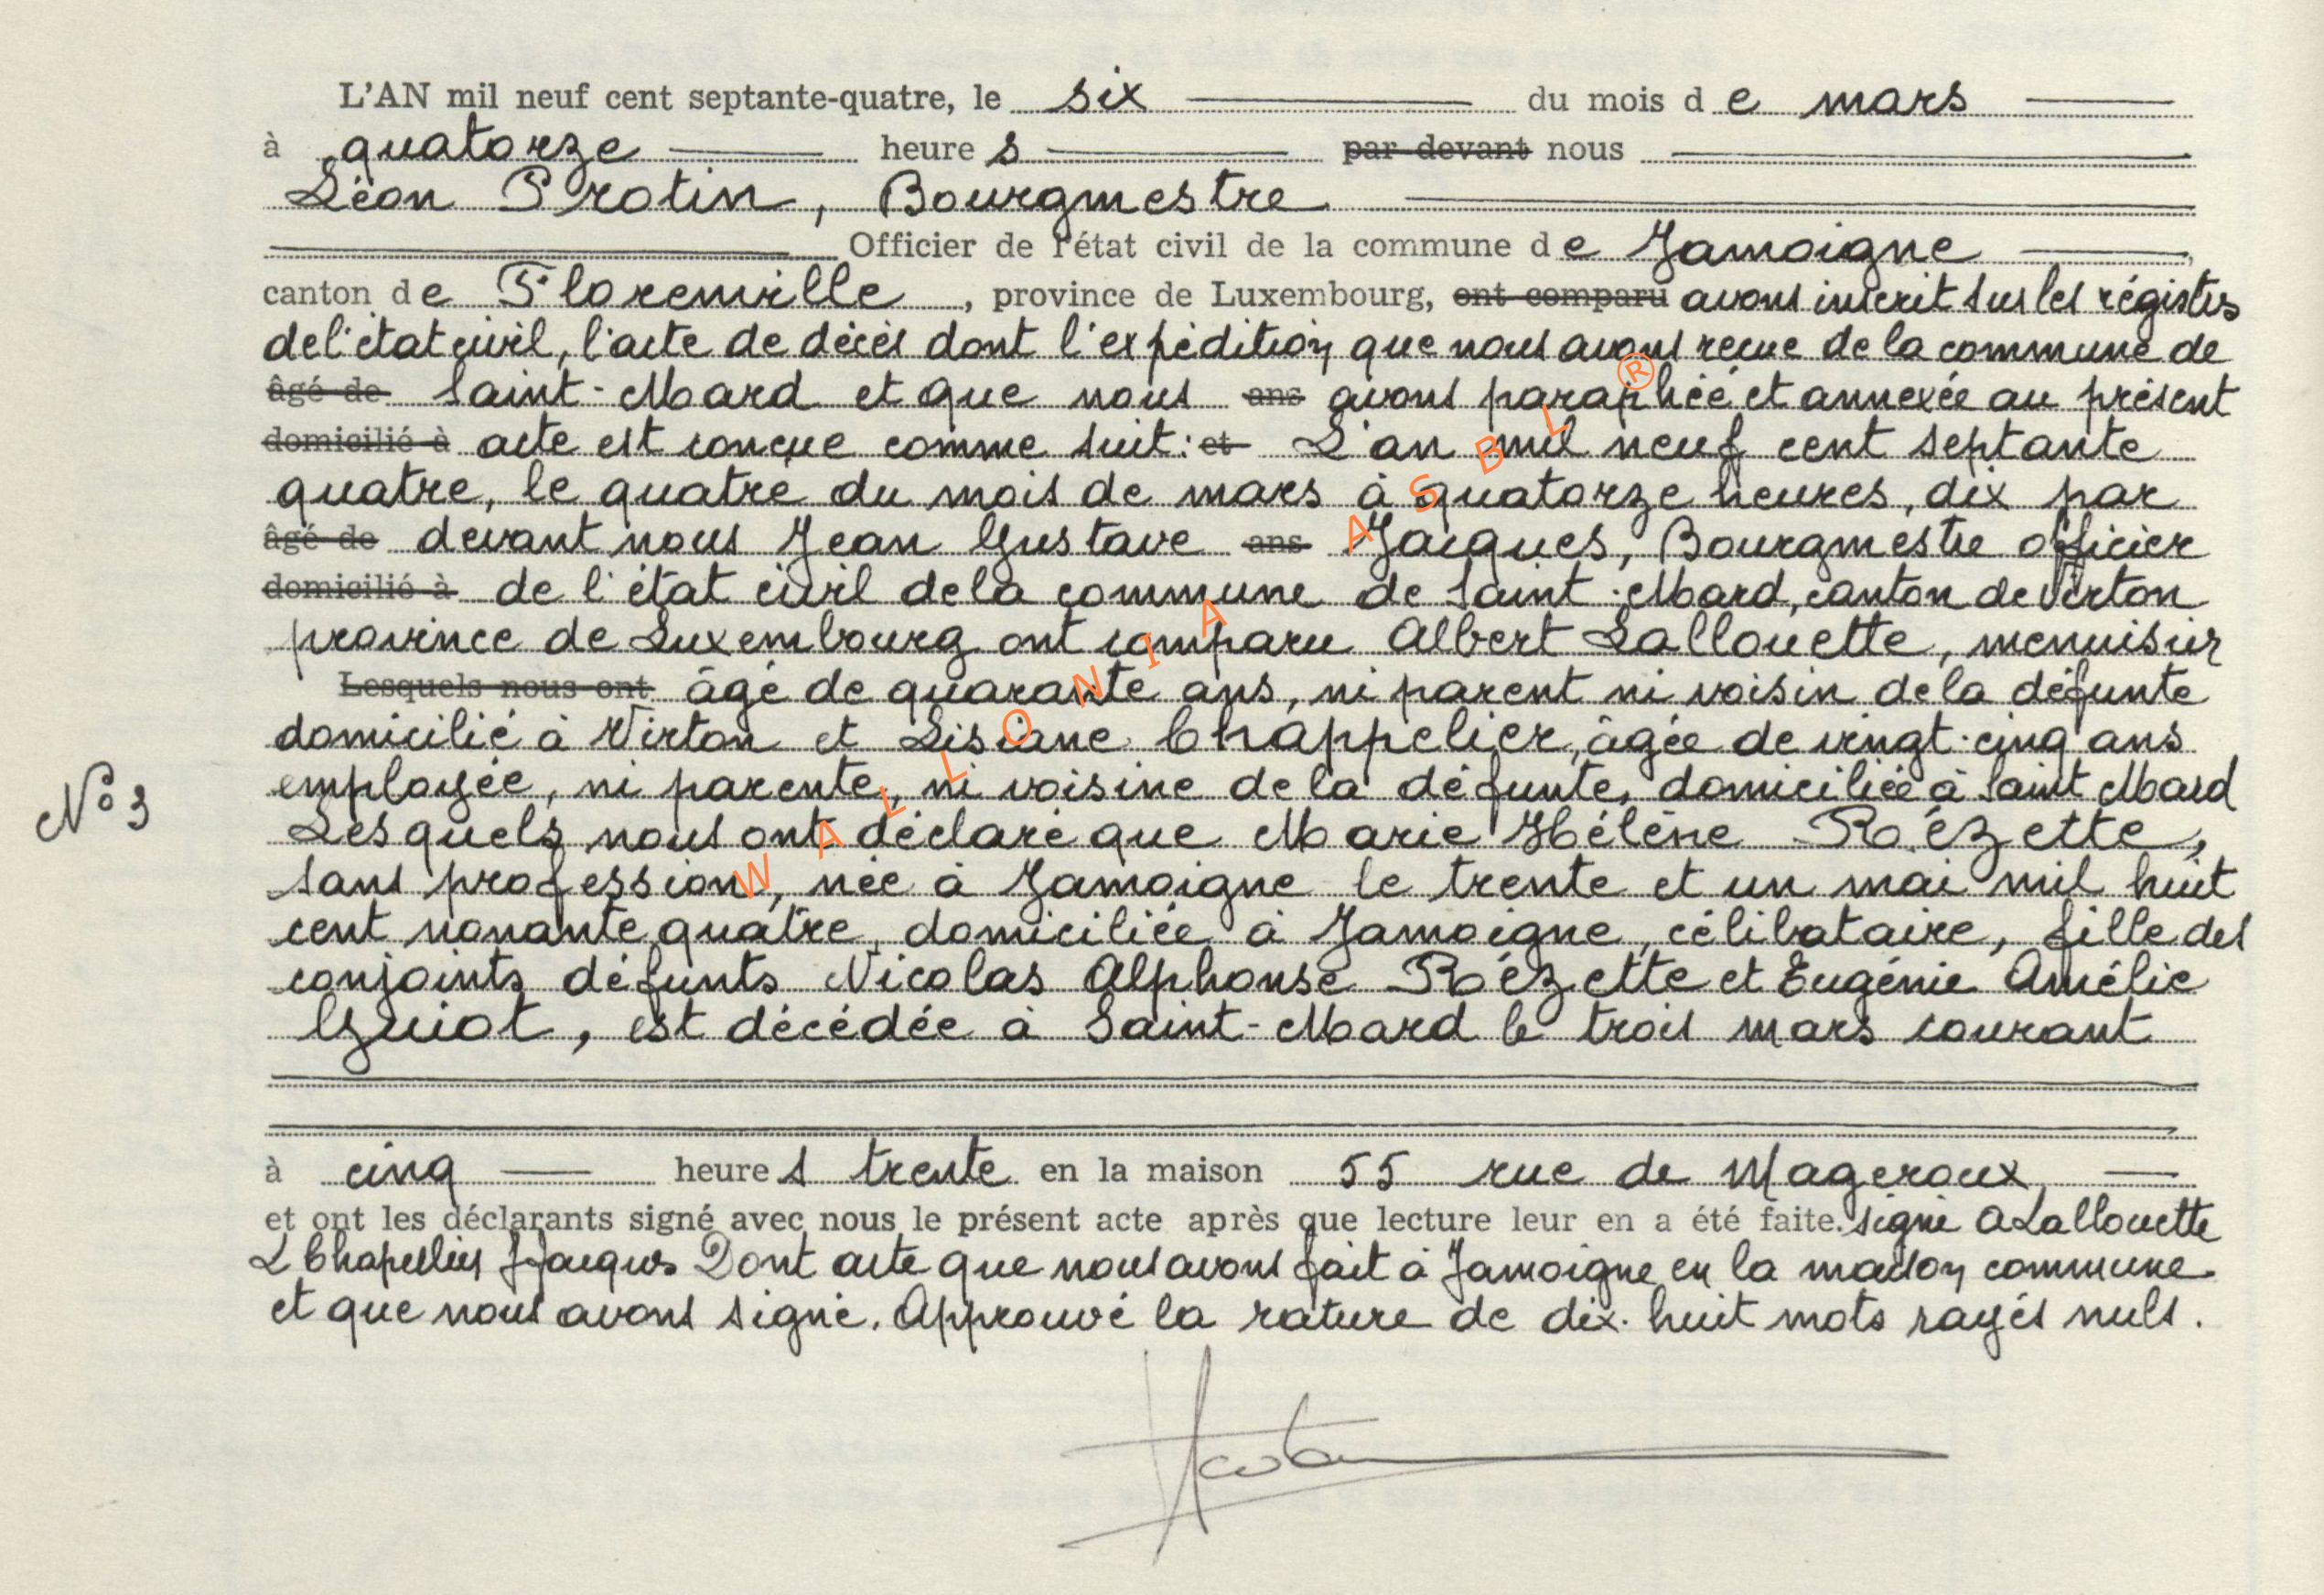 L'AN mil neuf cent septante-quatre, le six du mois de mars
à quatorze heures par devant nous
Léon Protin, Bourgmestre
Officier de l'état civil de la commune de Jamoigne,
canton de Florenville, province de Luxembourg, ont comparu avons inscrit sur les régistres
de l'état civil, l'acte de décès dont l'expédition que nous avons reçue de la commune de
âgé de Saint-Mard et que nous ans avons paraphée et annexée au présent
domicilié à acte est conçue comme suit: et L'an mil neuf cent septante
quatre, le quatre du mois de mars à quatorze heures, dix par
âgé de devant nous Jean Gustave ans Jacques, Bourgmestre officier
domicilié à de l'état civil de la commune de Saint-Mard, canton de Virton
province de Luxembourg ont comparu Albert Lallouette, menuisier
Lesquels nous ont âgé de quarante ans, ni parent ni voisin de la défunte
domicilié à Virton et Lisiane Chappelier, âgée de vingt-cinq ans
employée, ni parente, ni voisine de la défunte, domiciliée à Saint Mard
N° 3
Lesquels nous ont déclaré que Marie Hélène Rézette,
sans profession, née à Jamoigne le trente et un mai mil huit
cent nonante quatre, domiciliée à Jamoigne, célibataire, fille des
conjoints défunts Nicolas Alphonse Rézette et Eugénie Amélie
Guiot, est décédée à Saint-Mard le trois mars courant
à cinq heures trente en la maison 55 rue de Mageroux
et ont les déclarants signé avec nous le présent acte après que lecture leur en a été faite. signé A Lallouette
L Chapellier J Jacques Dont acte que nous avons fait à Jamoigne en la maison commune
et que nous avons signé. Approuvé la rature de dix-huit mots rayés nuls.
WALLONIA ASBL ®